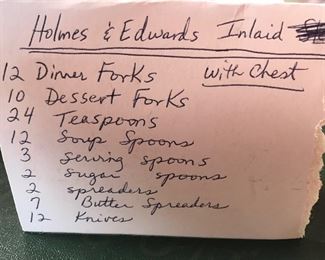 Holmes & Edwards Inlaid
12 Dinner Forks with Chest
10 Dessert Forks
24 Teaspoons
12 Soup Spoons
3 serving spoons
2 sugar spoons
2 spreaders
7 Butter Spreaders
12 Knives